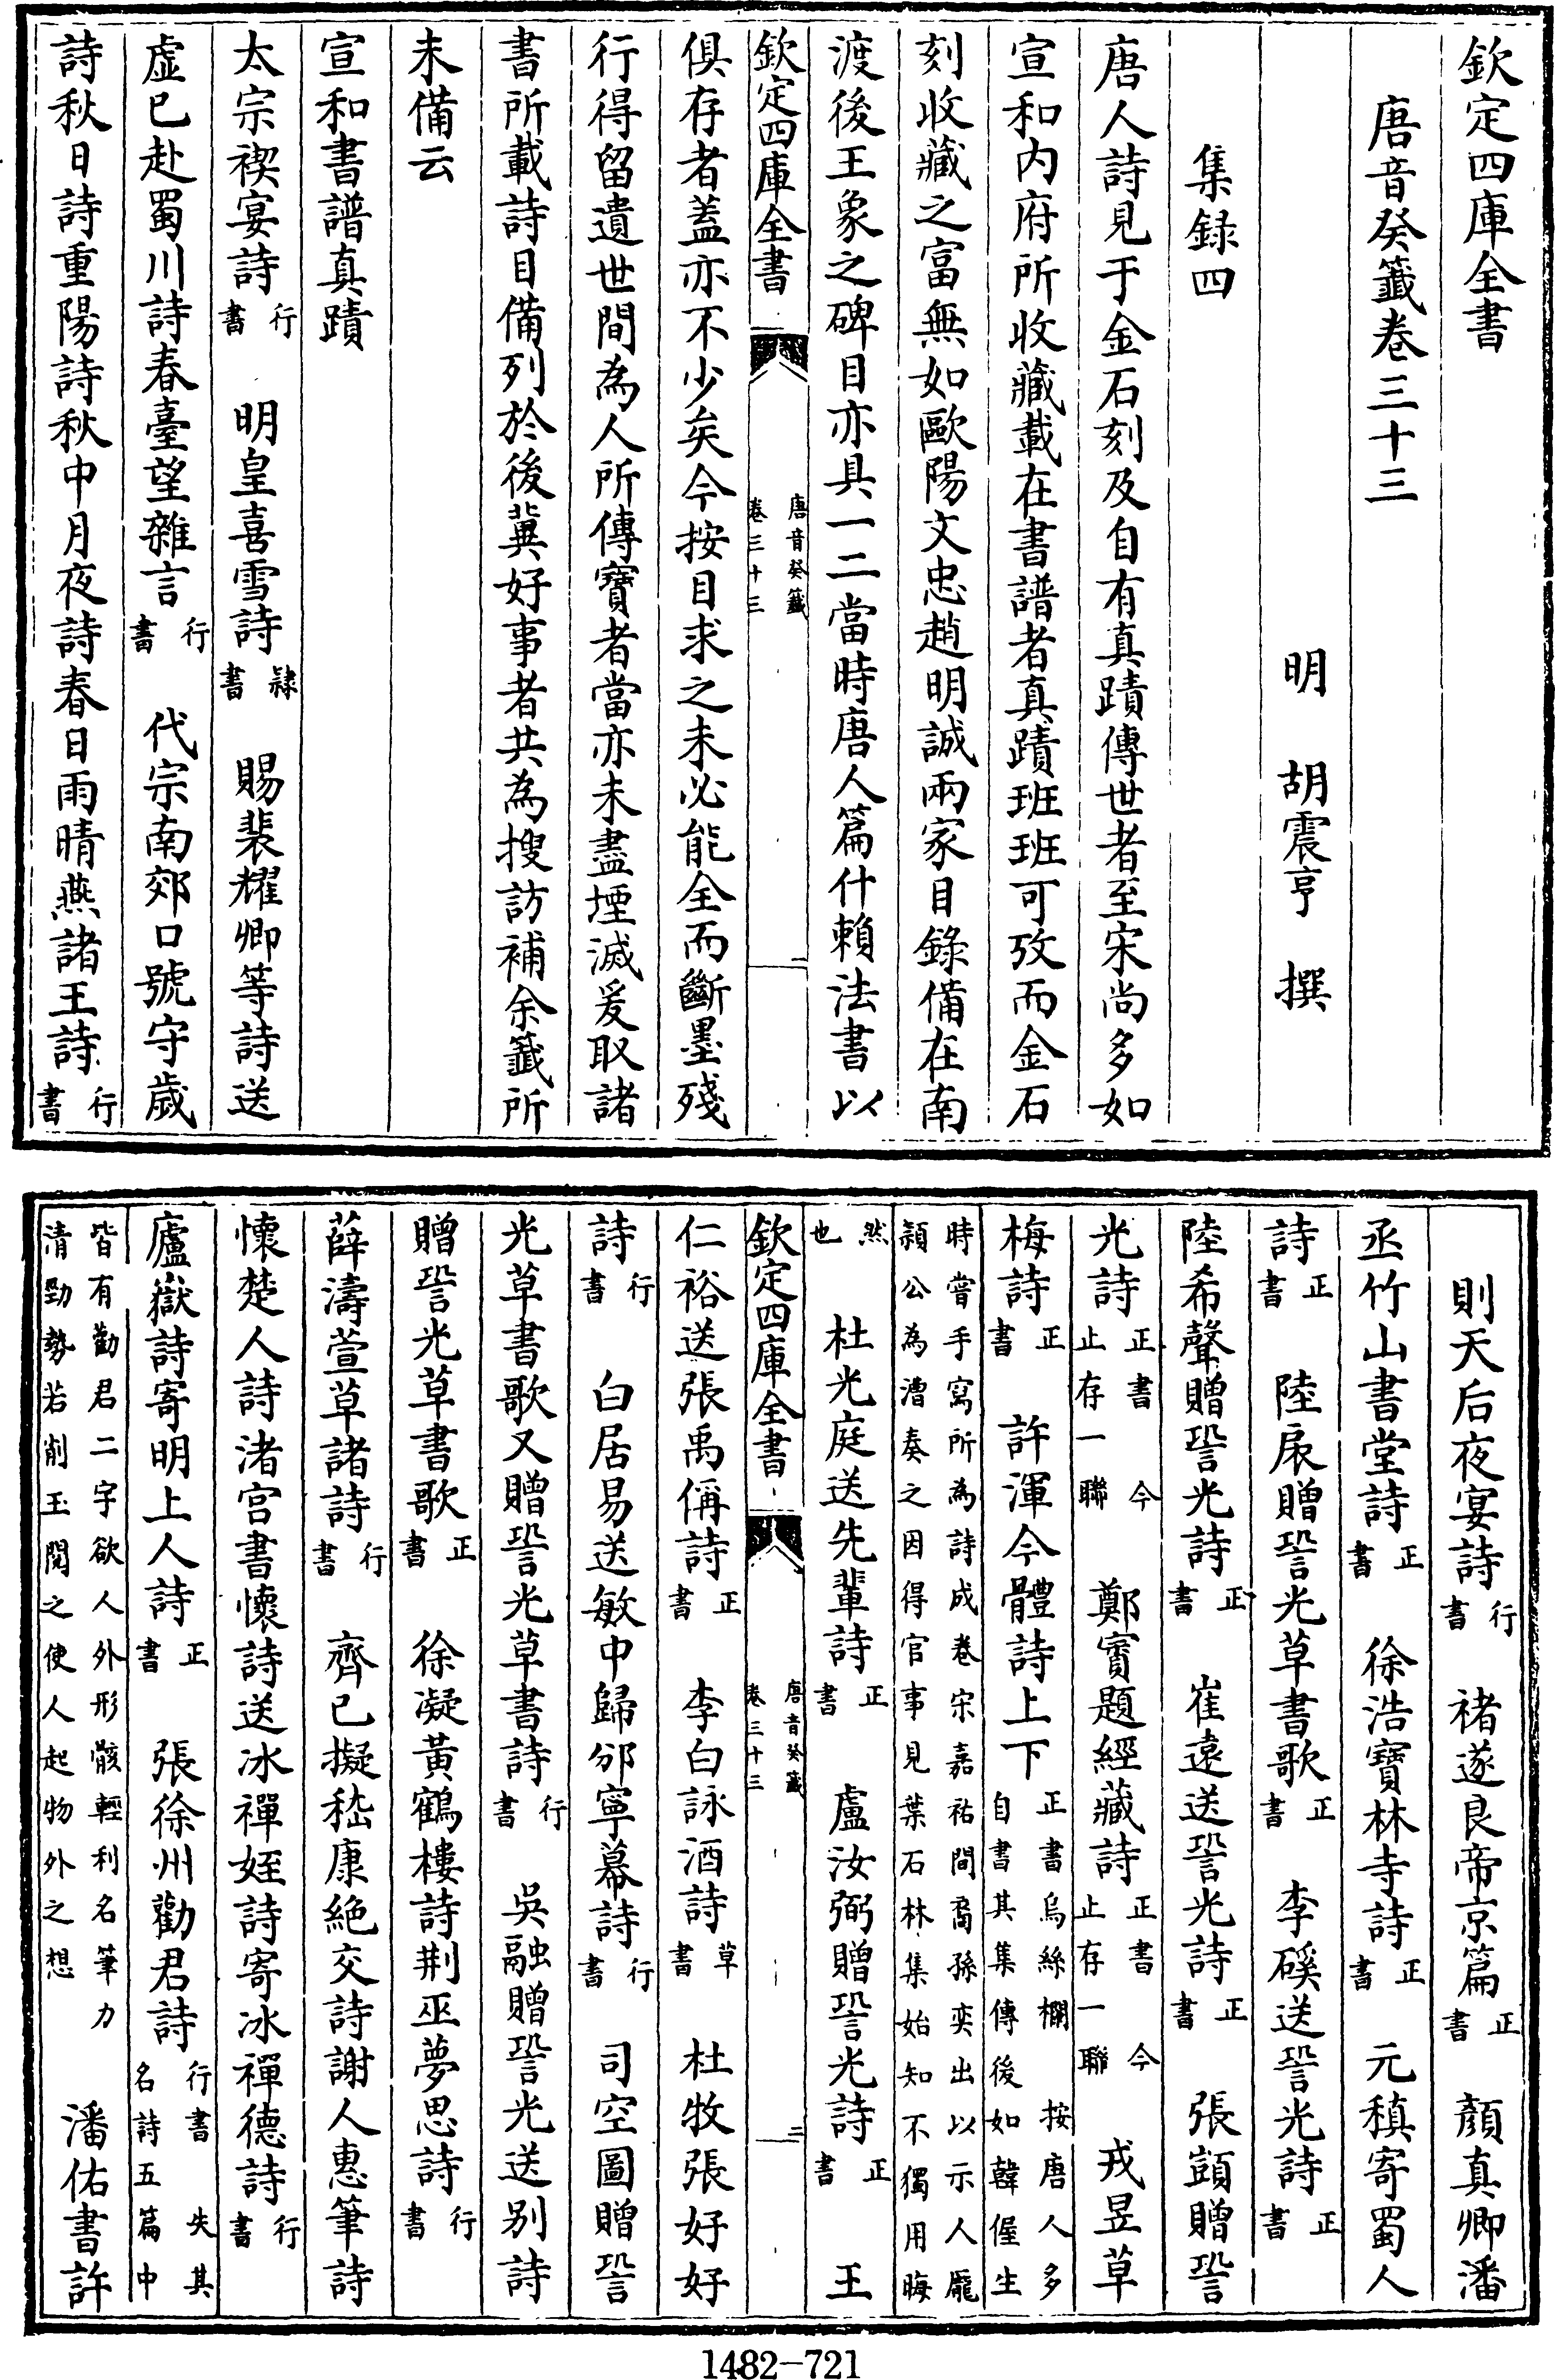 欽定四庫全書
唐音癸籤卷三十三
明　胡震亨　撰
集録四
唐人詩見于金石刻及自有真蹟傳世者至宋尚多如
宣和内府所收藏載在書譜者真蹟班班可攷而金石
刻收藏之富無如歐陽文忠趙明誠兩家目錄備在南
渡後王象之碑目亦具一二當時唐人篇什賴法書以
欽定四庫全書　唐音癸籤　卷三十三　二
俱存者蓋亦不少矣今按目求之未必能全而斷墨殘
行得留遺世間為人所傳寶者當亦未盡堙滅爰取諸
書所載詩目備列於後冀好事者共為搜訪補余籤所
未備云
宣和書譜真蹟
太宗禊宴詩行書　明皇喜雪詩隸書　賜裴耀卿等詩送
虛已赴蜀川詩春臺望雜言行書　代宗南郊口號守歲
詩秋日詩重陽詩秋中月夜詩春日雨晴燕諸王詩行書
則天后夜宴詩行書　褚遂良帝京篇正書　顏真卿潘
丞竹山書堂詩正書　徐浩寶林寺詩正書　元稹寄蜀人
詩正書　陸扆贈䛒光草書歌正書　李磎送䛒光詩正書
陸希聲贈䛒光詩正書　崔遠送䛒光詩正書　張顗贈䛒
光詩正書今止存一聯　鄭賨題經藏詩正書今止存一聯　戎昱草
梅詩正書　許渾今體詩上下正書烏絲欄　按唐人多自書其集傳後如韓偓生
時嘗手寫所為詩成卷宋嘉祐間裔孫奕出以示人龎潁公為漕奏之因得官事見葉石林集始知不獨用晦
然也　杜光庭送先輩詩正書　盧汝弼贈䛒光詩正書　王
欽定四庫全書　唐音癸籤　卷三十三　三
仁裕送張禹偁詩正書　李白詠酒詩草書　杜牧張好好
詩行書　白居易送敏中歸邠寧幕詩行書　司空圖贈䛒
光草書歌又贈䛒光草書詩行書　吳融贈䛒光送别詩
贈䛒光草書歌正書　徐凝黃鶴樓詩荆巫夢思詩行書
薛濤萱草諸詩行書　齊已擬嵇康絶交詩謝人惠筆詩
懷楚人詩渚宫書懷詩送冰禪姪詩寄冰禪德詩行書
廬嶽詩寄明上人詩正書　張徐州勸君詩行書　失其名詩五篇中
皆有勸君二字欲人外形骸輕利名筆力清勁勢若削玉閲之使人起物外之想　潘佑書許
1482-721